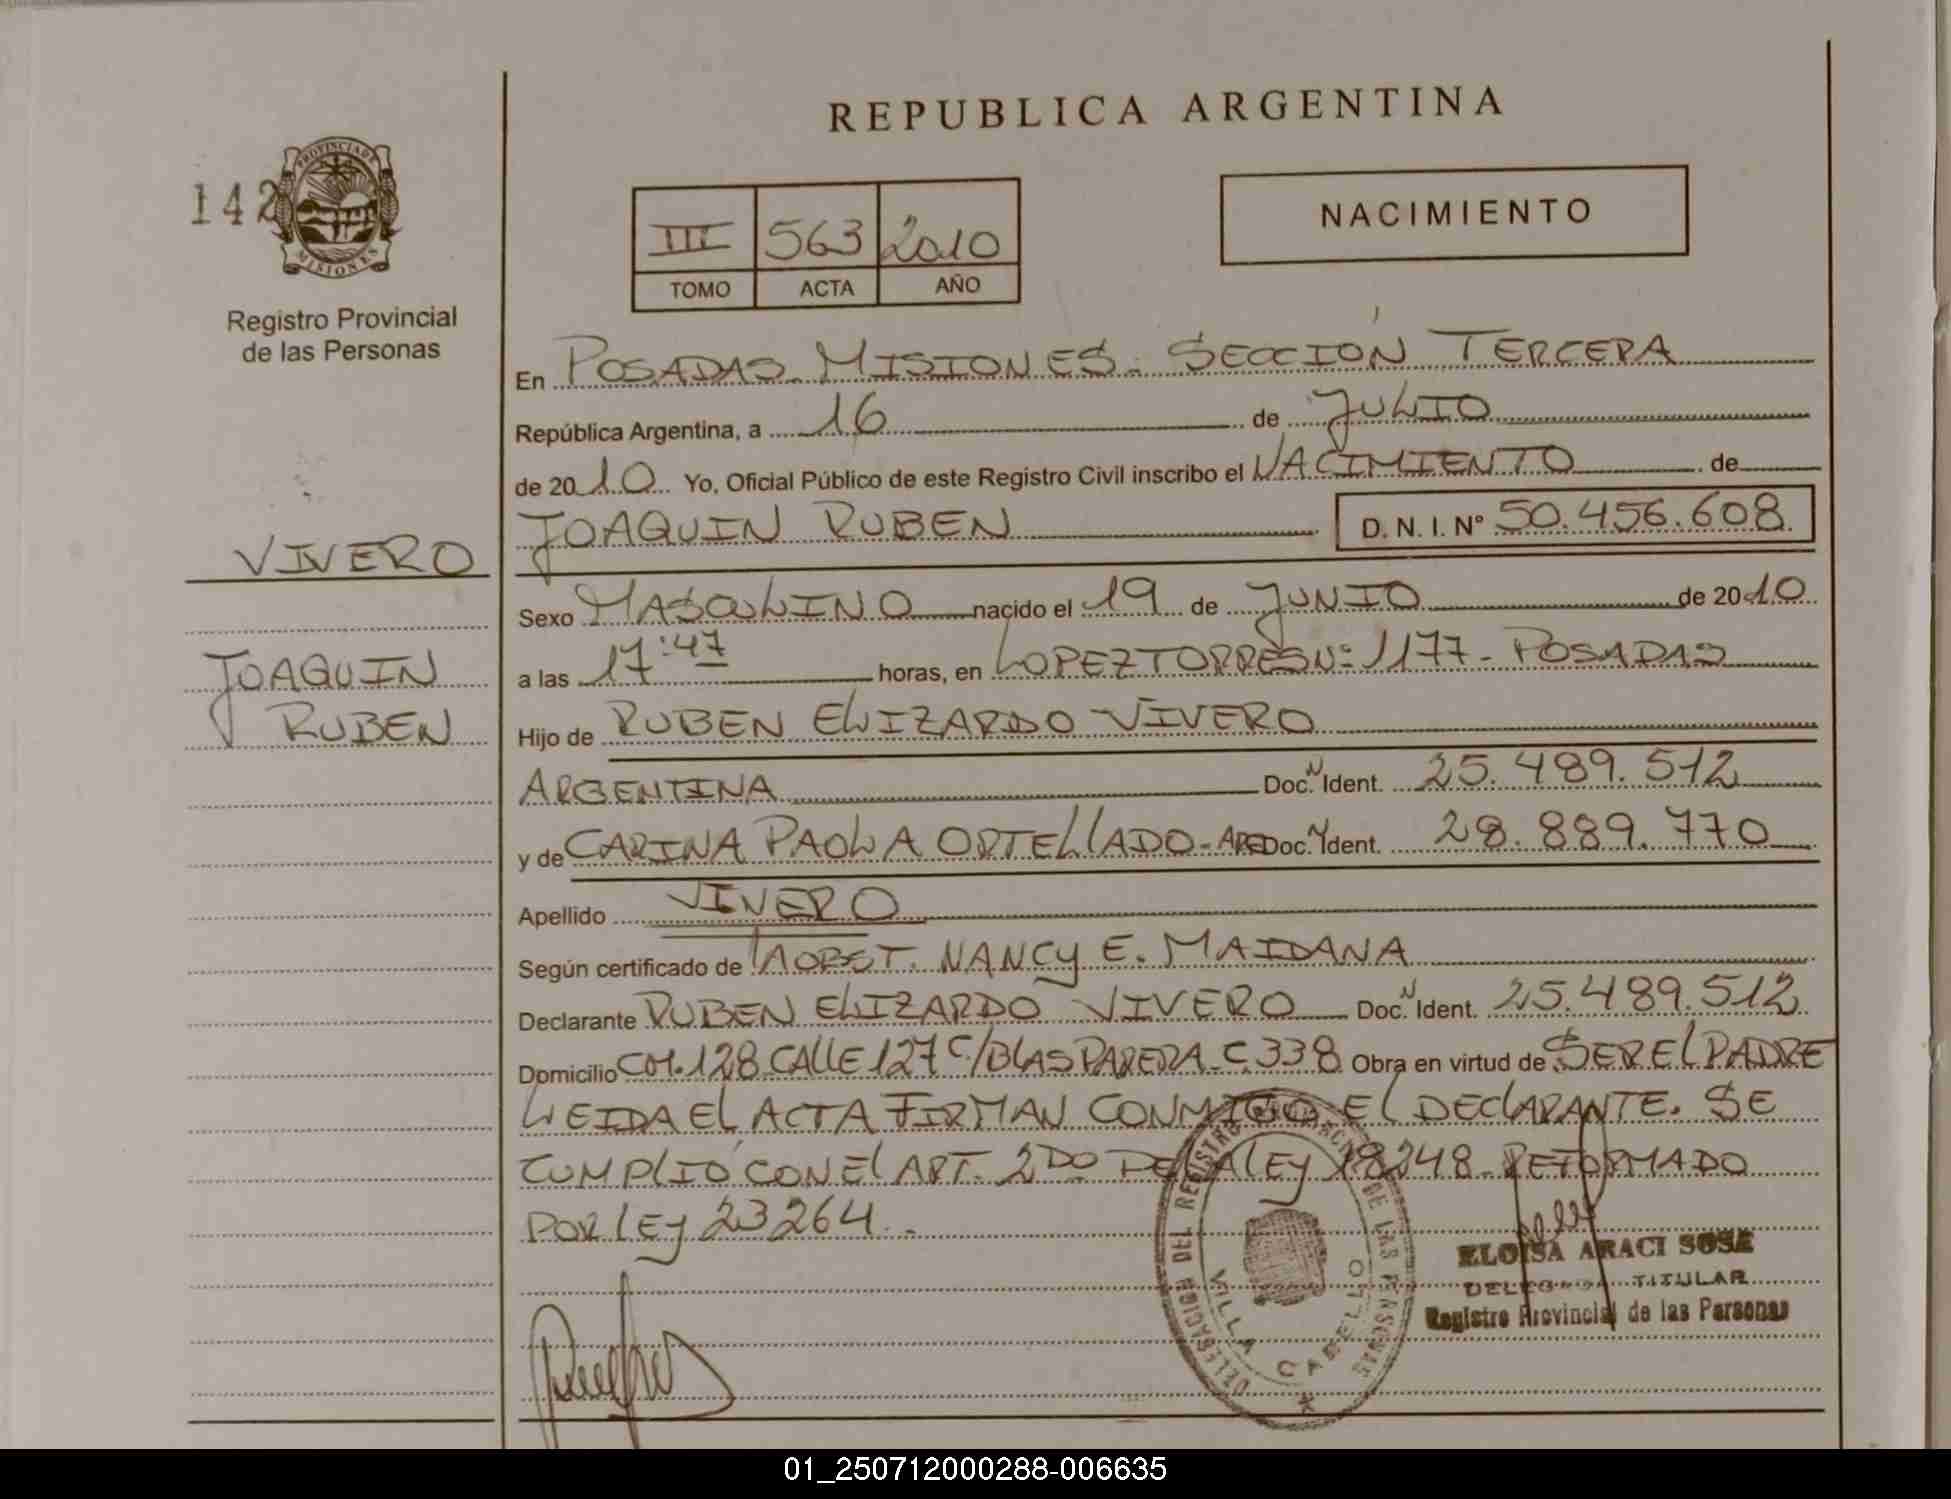 REPUBLICA ARGENTINA
142
PROVINCIA DE
MISIONES
Registro Provincial
de las Personas
III 563 2010
TOMO ACTA AÑO
NACIMIENTO
En POSADAS. MISIONES. SECCIÓN TERCERA
República Argentina, a 16 de JULIO
de 2010 Yo, Oficial Público de este Registro Civil inscribo el NACIMIENTO de
JOAQUIN RUBEN D. N. I. N° 50.456.608
VIVERO
JOAQUIN
RUBEN
Sexo MASCULINO nacido el 19 de JUNIO de 2010
a las 17:47 horas, en LOPEZ TORRES Nº 1177 - POSADAS
Hijo de RUBEN ELIZARDO VIVERO
ARGENTINA Doc. N Ident. 25.489.512
y de CARINA PAOLA ORTELLADO - ARG Doc. N Ident. 28.889.770
Apellido VIVERO
Según certificado de NANCY E. MAIDANA
Declarante RUBEN ELIZARDO VIVERO Doc. N Ident. 25.489.512
Domicilio CH. 128 CALLE 127 C/BLAS PARERA - C. 338 Obra en virtud de SER EL PADRE
LEIDA EL ACTA FIRMAN CONMIGO EL DECLARANTE. SE
CUMPLIÓ CON EL ART. 2DO DE LA LEY 18248 - REFORMADO
POR LEY 23264.-
DELEGACION DEL REGISTRO DE LAS PERSONAS
VILLA CABELLO
ELOISA ARACI SOSE
DELEGADA TITULAR
Registro Provincial de las Personas
01_250712000288-006635